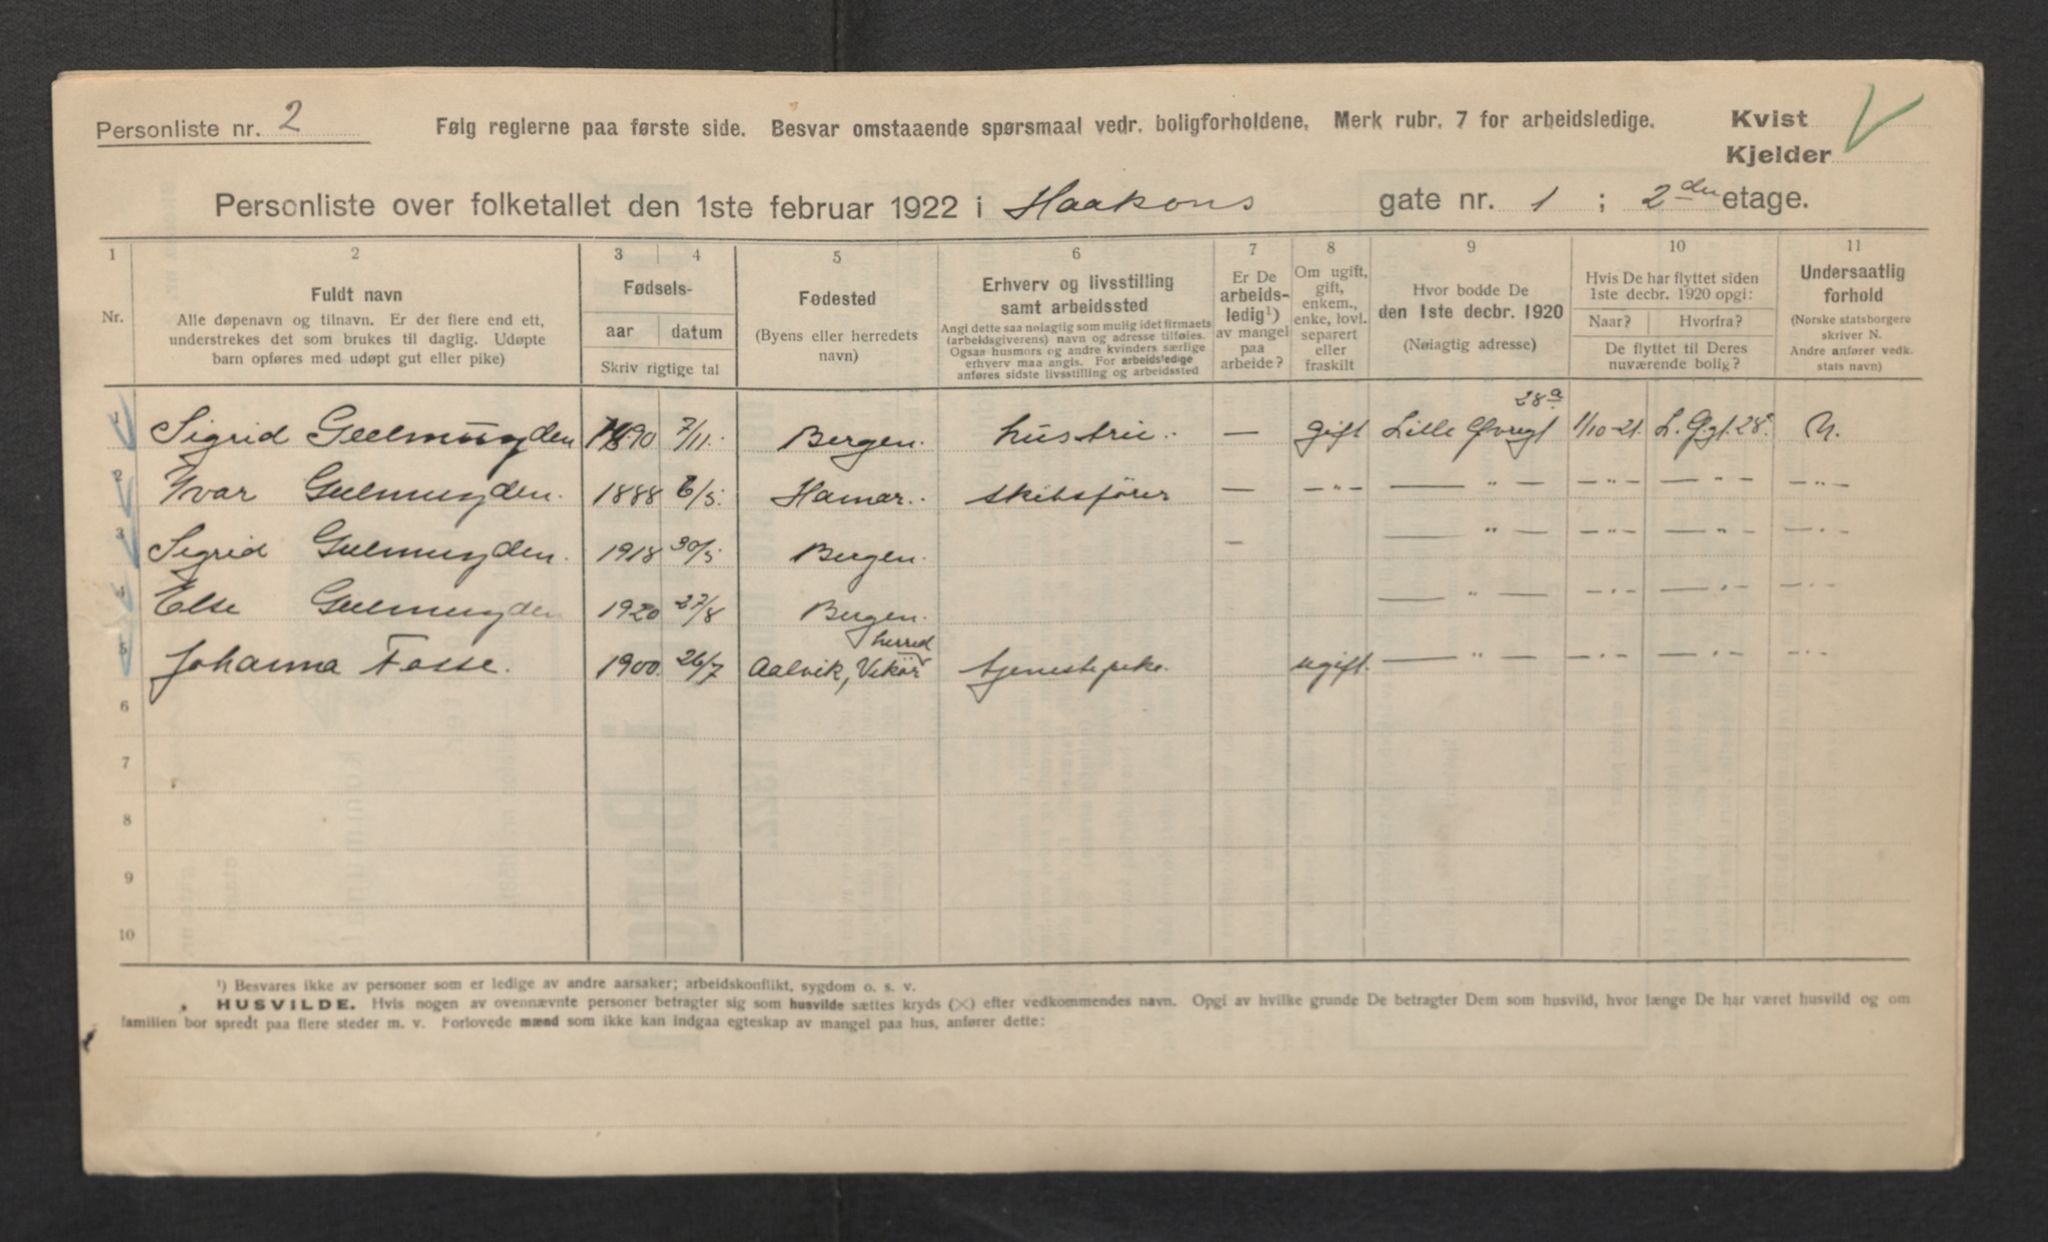 Personliste nr. 2
Følg reglerne paa første side. Besvar omstaaende spørsmaal vedr. boligforholdene. Merk rubr. 7 for arbeidsledige.
Kvist
Kjelder
Personliste over folketallet den 1ste februar 1922 i Haakons gate nr. 1 ; 2den etage.
1 2 3 4 5 6 7 8 9 10 11
Nr.
Fuldt navn
Alle døpenavn og tilnavn. Er der flere end ett,
understrekes det som brukes til daglig. Udøpte
barn opføres med udøpt gut eller pike)
Fødsels-
aar datum
Skriv rigtige tal
Fødested
(Byens eller herredets
navn)
Erhverv og livsstilling
samt arbeidssted
Angi dette saa nøiagtig som mulig idet firmaets
(arbeidsgiverens) navn og adresse tilføies.
Ogsaa husmors og andre kvinders særlige
erhverv maa angis. For arbeidsledige
anføres sidste livsstilling og arbeidssted
Er De
arbeids-
ledig¹)
av mangel
paa
arbeide?
Om ugift,
gift,
enkem.,
enke, lovl.
separert
eller
fraskilt
Hvor bodde De
den 1ste decbr. 1920
(Nøiagtig adresse)
Hvis De har flyttet siden
1ste decbr. 1920 opgi:
Naar? Hvorfra?
De flyttet til Deres
nuværende bolig?
Undersaatlig
forhold
(Norske statsborgere
skriver N.
Andre anfører vedk.
stats navn)
28a
1 Sigrid Geelmuyden 1890 7/11. Bergen. hustru. — gift Lille Øvregt 1/10-21. L. Ø.gt. 28a. N.
2 Ivar Geelmuyden. 1888 6/5. Hamar. skibsfører — — " — — " — — " — — " — — " —
3 Sigrid Geelmuyden. 1918 30/5 Bergen. — — " — — " — — " — — " —
4 Else Geelmuyden 1920 27/8 Bergen. — " — — " — — " — — " —
herred
5 Johanna Fosse. 1900. 26/7 Aalvik, Vikør tjenestepike. ugift. — " — — " — — " — — " —
6
7
8
9
10
¹) Besvares ikke av personer som er ledige av andre aarsaker; arbeidskonflikt, sygdom o. s. v.
HUSVILDE. Hvis nogen av ovennævnte personer betragter sig som husvilde sættes kryds (×) efter vedkommendes navn. Opgi av hvilke grunde De betragter Dem som husvild, hvor længe De har været husvild og om
familien bor spredt paa flere steder m. v. Forlovede mænd som ikke kan indgaa egteskap av mangel paa hus, anfører dette: